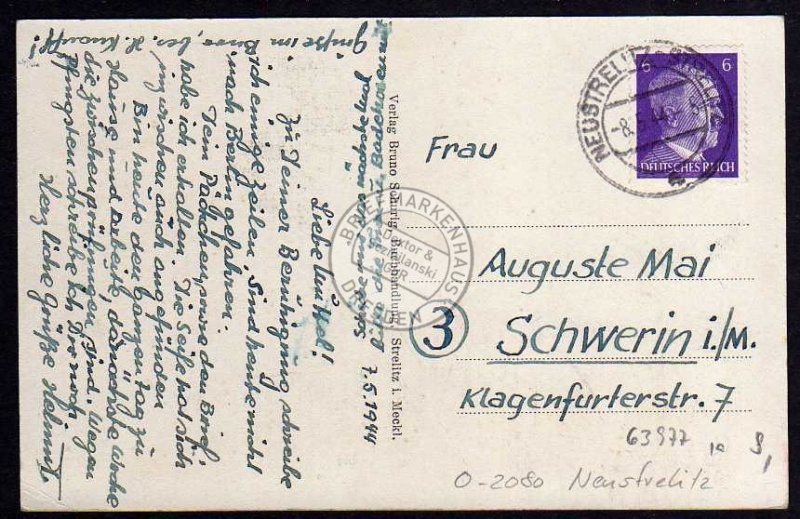 Grüße im Büro, bes. H. Knauff!
7.5.1944
Liebe Mutzel!
Zu Deiner Beruhigung schreibe
ich einige Zeilen. Sind heute nicht
nach Berlin gefahren.
Dein Päckchen, sowie den Brief
habe ich erhalten. Die Seife hat sich
inzwischen auch angefunden
Bin heute den ganzen Tag zu
Hause und arbeite, da nächste Woche
die Zwischenprüfungen sind. Wegen
Pfingsten schreibe ich Dir noch
Herzliche Grüße Helmut
Verlag Bruno Schurig, Buchhandlung, Strelitz i. Meckl.
BRIEFMARKENHAUS
Doktor &
GbR
DRESDEN
NEUSTRELITZ
-8.
6 6
DEUTSCHES REICH
Frau
Auguste Mai
3 Schwerin i/M.
Klagenfurterstr. 7
63977
O-2080 Neustrelitz